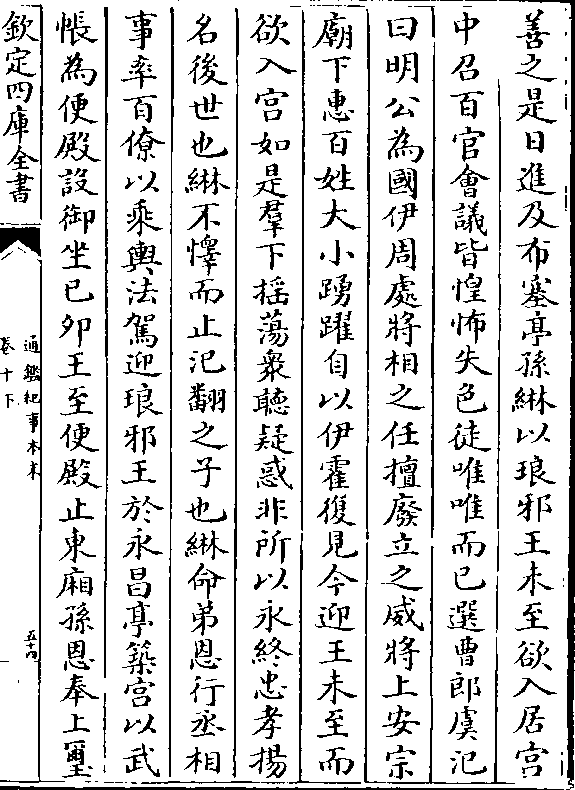 善之是日進及布塞亭孫綝以琅邪王未至欲入居宮
中召百官會議皆惶怖失色徒唯唯而已選曹郎虞汜
曰明公為國伊周處將相之任擅廢立之威將上安宗
廟下惠百姓大小踴躍自以伊霍復見今迎王未至而
欲入宮如是羣下揺蕩衆聽疑惑非所以永終忠孝揚
名後世也綝不懌而止汜翻之子也綝命弟恩行丞相
事率百僚以乘輿法駕迎琅邪王於永昌亭築宮以武
帳為便殿設御坐已夘王至便殿止東廂孫恩奉上璽
欽定四庫全書
通鑑紀事本末
卷十下
五十四